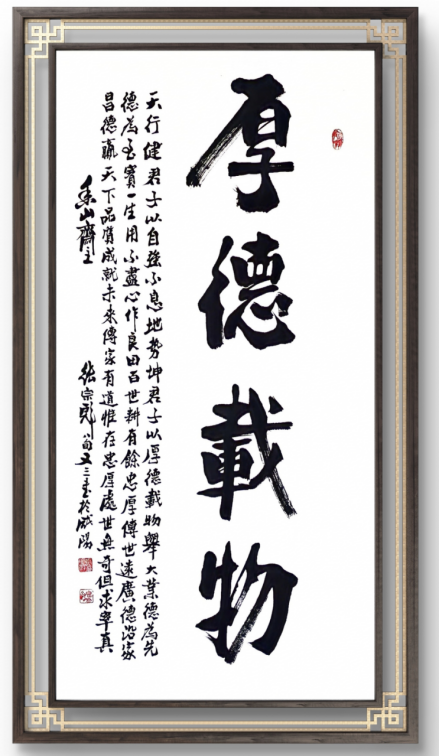 厚德載物
天行健君子以自強不息地势坤君子以厚德載物舉大業德為先
德為至寶一生用不盡心作良田百世耕有餘忠厚傳世遠廣德治家
昌德贏天下品質成就未來傳家有道惟存忠厚處世無奇但求率真
山齋主 張宗彪 旬又三書於咸陽